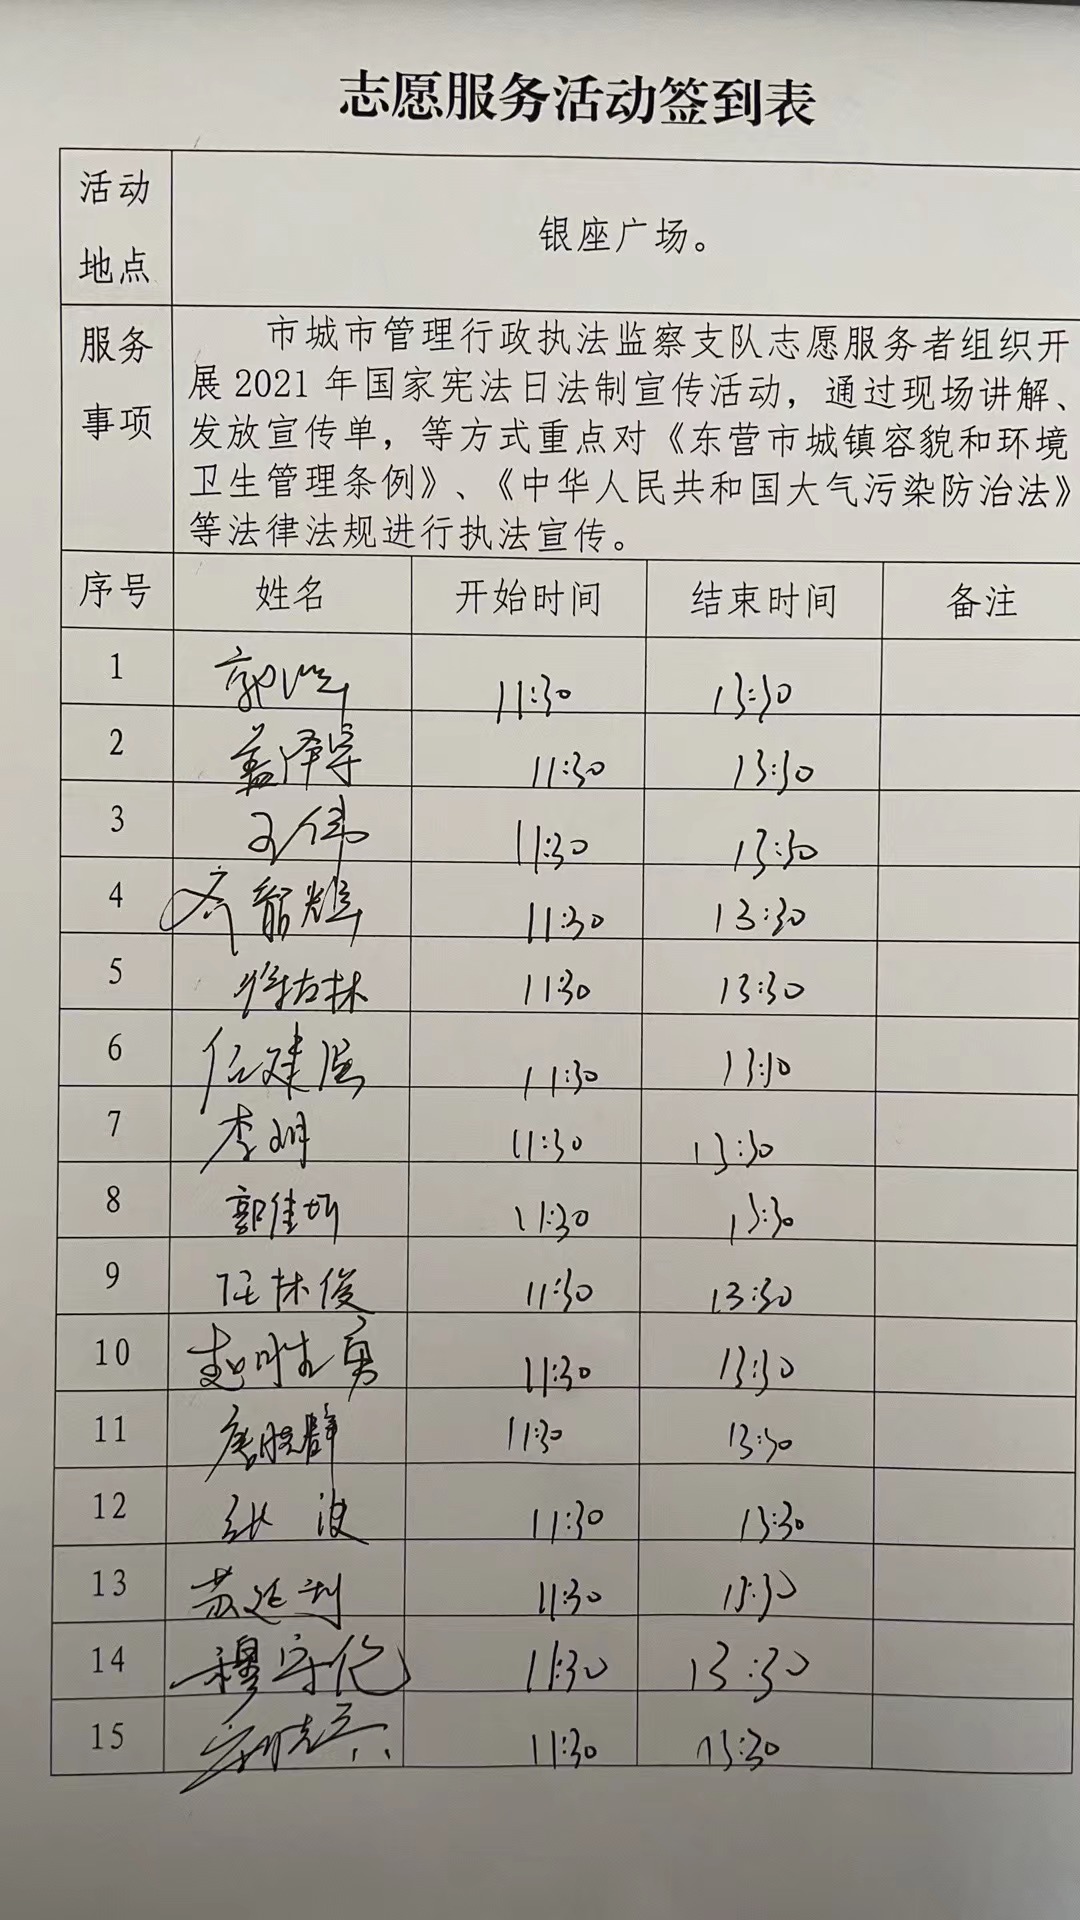 志愿服务活动签到表
活动地点 银座广场。
服务事项
市城市管理行政执法监察支队志愿服务者组织开
展2021年国家宪法日法制宣传活动，通过现场讲解、
发放宣传单，等方式重点对《东营市城镇容貌和环境
卫生管理条例》、《中华人民共和国大气污染防治法》
等法律法规进行执法宣传。
序号 姓名 开始时间 结束时间 备注
1 11:30 13:30
2 盖泽宇 11:30 13:30
3 王伟 11:30 13:30
4 齐韶辉 11:30 13:30
5 11:30 13:30
6 任建展 11:30 13:30
7 李明 11:30 13:30
8 郭佳圻 11:30 13:30
9 任林俊 11:30 13:30
10 赵胜勇 11:30 13:30
11 唐晓群 11:30 13:30
12 张波 11:30 13:30
13 苏延利 11:30 13:30
14 穆守伦 11:30 13:30
15 11:30 13:30